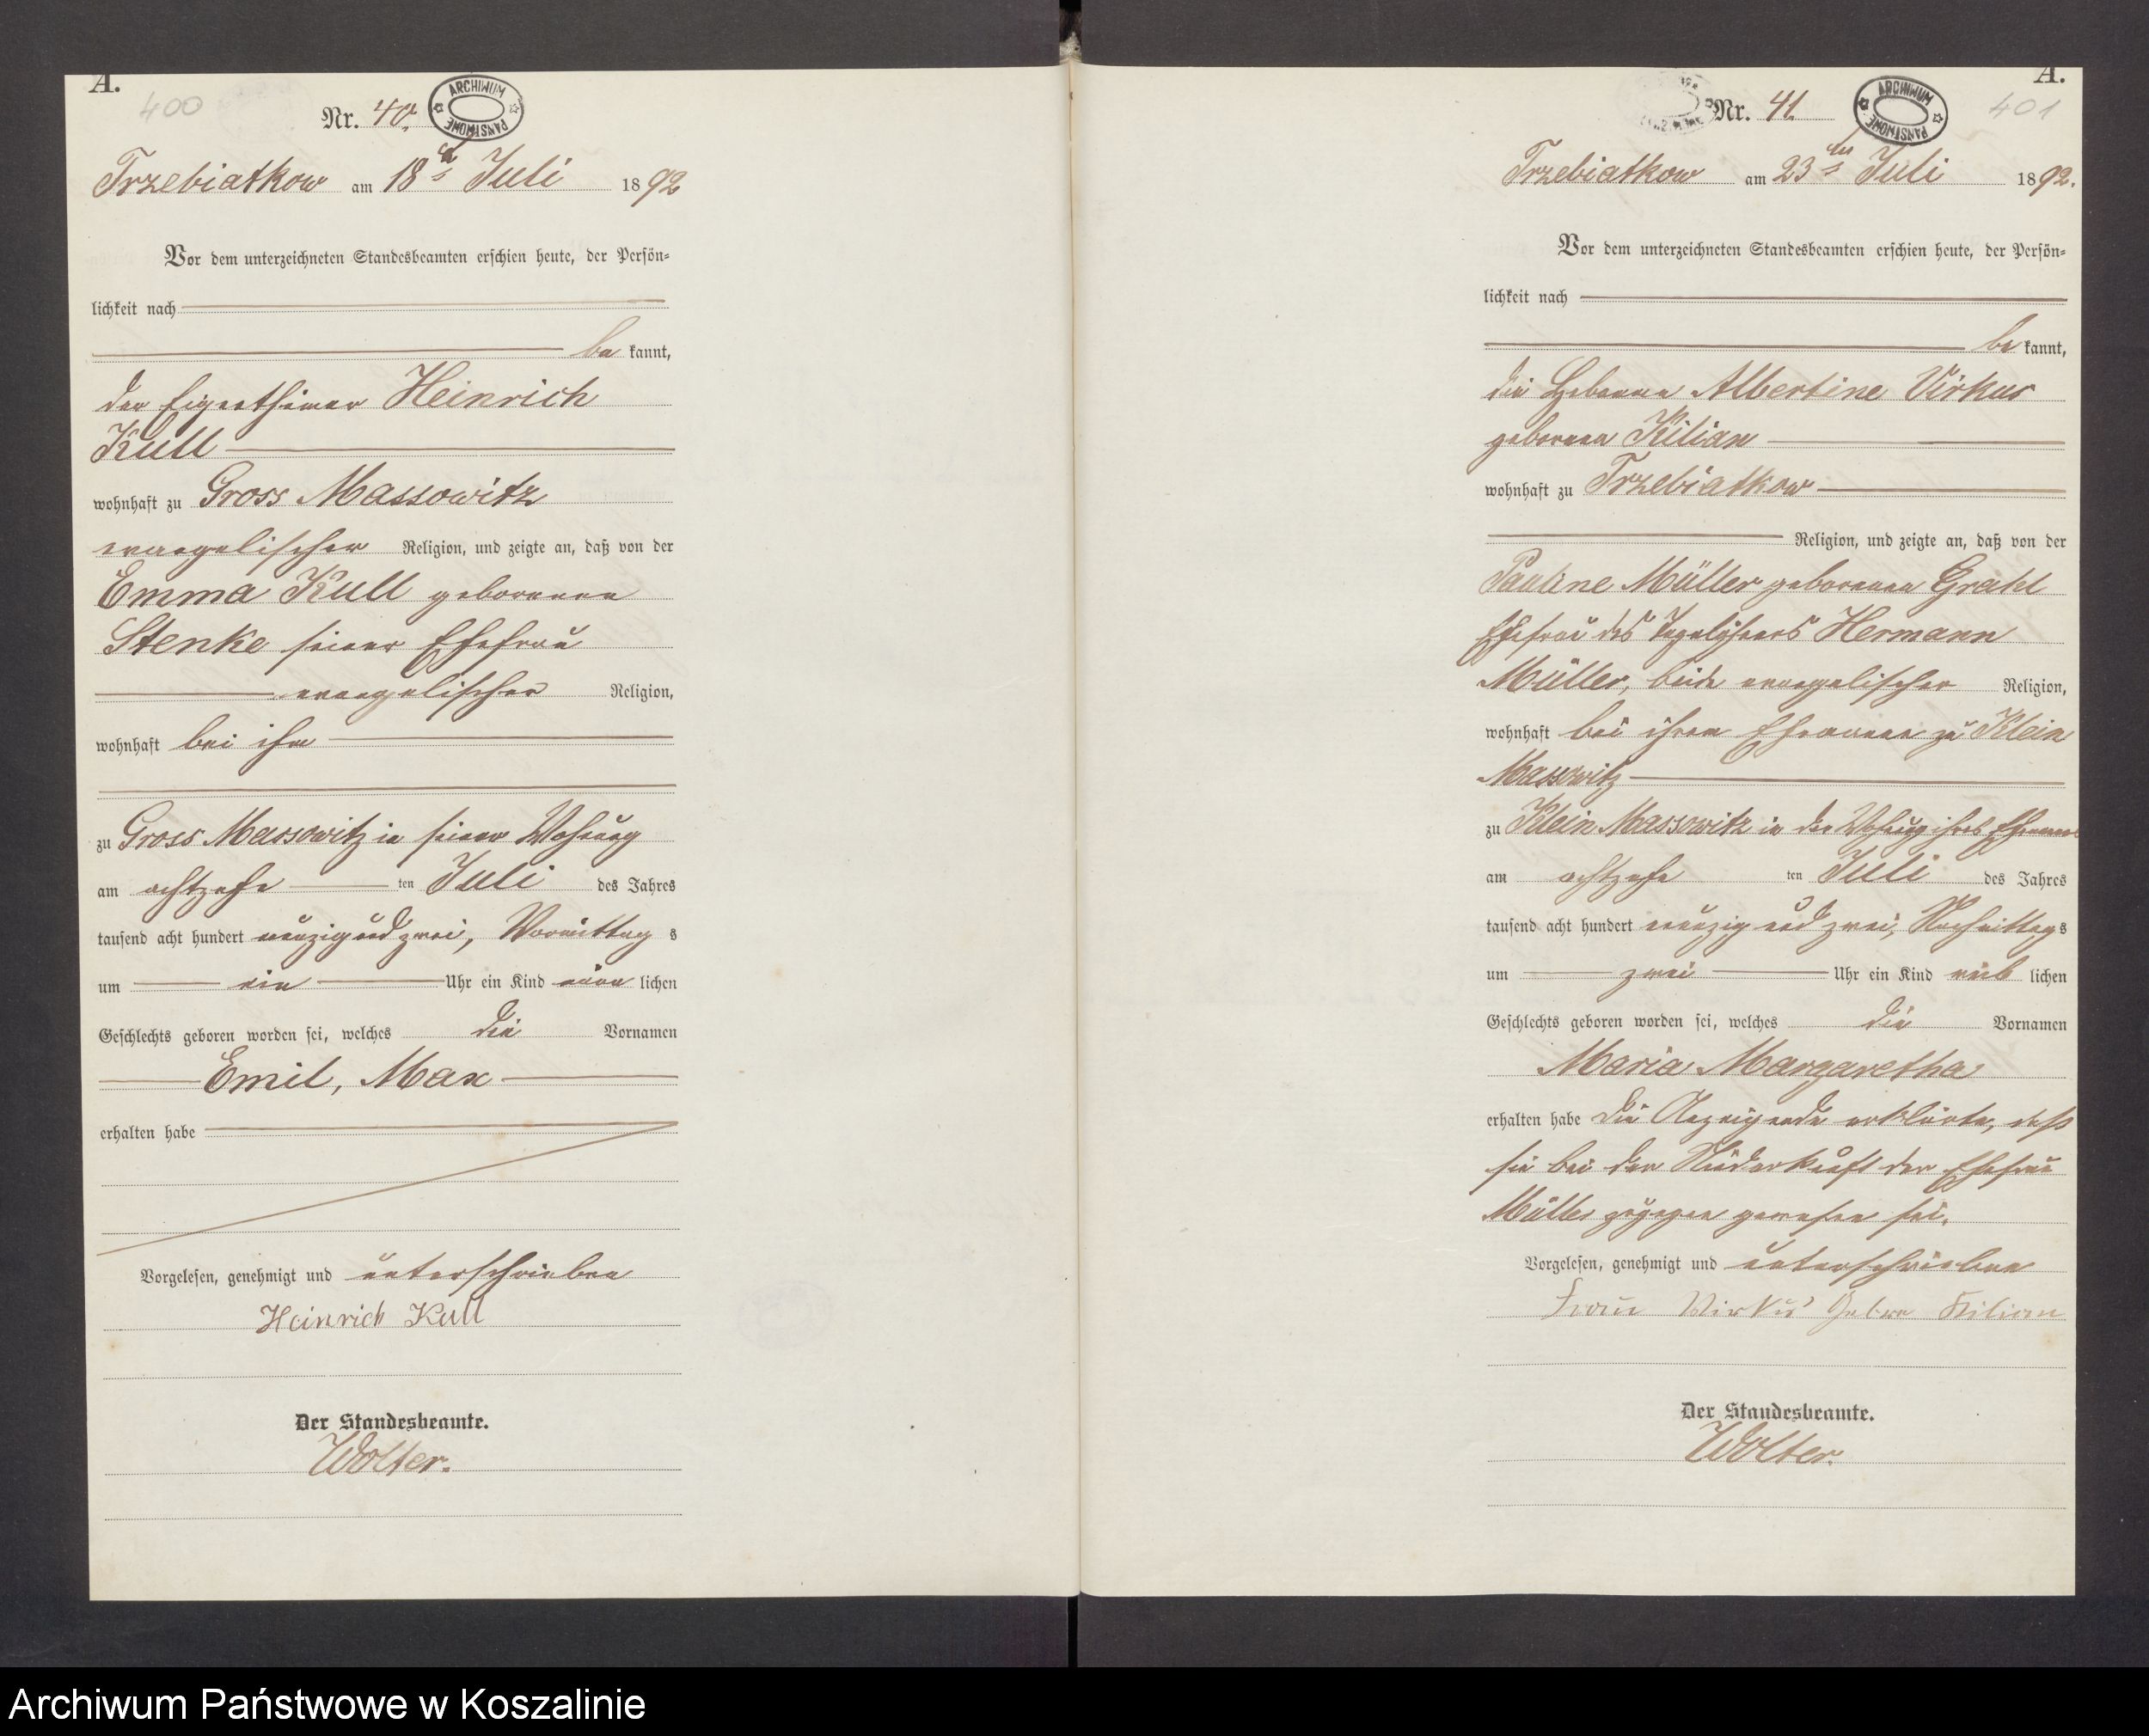 A.
400
Nr. 40.
ARCHIWUM PAŃSTWOWE
Trzebiatkow am 18ten Juli 1892
Vor dem unterzeichneten Standesbeamten erschien heute, der Persön-
lichkeit nach
be kannt,
der Eigenthümer Heinrich
Kull
wohnhaft zu Gross Massowitz
evangelischer Religion, und zeigte an, daß von der
Emma Kull geborenen
Stenke seiner Ehefrau
evangelischer Religion,
wohnhaft bei ihm
zu Gross Massowitz in seiner Wohnung
am achtzehn ten Juli des Jahres
tausend acht hundert neunzig und zwei, Vormittag s
um ein Uhr ein Kind männ lichen
Geschlechts geboren worden sei, welches die Vornamen
Emil, Max
erhalten habe
Vorgelesen, genehmigt und unterschrieben
Heinrich Kull
Der Standesbeamte.
Wolter.
A.
401
Nr. 41.
ARCHIWUM PAŃSTWOWE
Trzebiatkow am 23ten Juli 1892.
Vor dem unterzeichneten Standesbeamten erschien heute, der Persön-
lichkeit nach
be kannt,
die Hebamme Albertine Virkus
geborenen Kilian
wohnhaft zu Trzebiatkow
Religion, und zeigte an, daß von der
Pauline Müller geborenen Grahl
Ehefrau des Tagelöhners Hermann
Müller, beide evangelischer Religion,
wohnhaft bei ihrem Ehemanne zu Klein
Massowitz
zu Klein Massowitz in der Wohnung ihres Ehemannes
am achtzehn ten Juli des Jahres
tausend acht hundert neunzig und zwei, Nachmittag s
um zwei Uhr ein Kind weib lichen
Geschlechts geboren worden sei, welches die Vornamen
Maria Margaretha
erhalten habe Die Anzeigende erklärte, daß
sie bei der Niederkunft der Ehefrau
Müller zugegen gewesen sei.
Vorgelesen, genehmigt und unterschrieben
Frau Wirkus Gebrn Kilian
Der Standesbeamte.
Wolter.
Archiwum Państwowe w Koszalinie